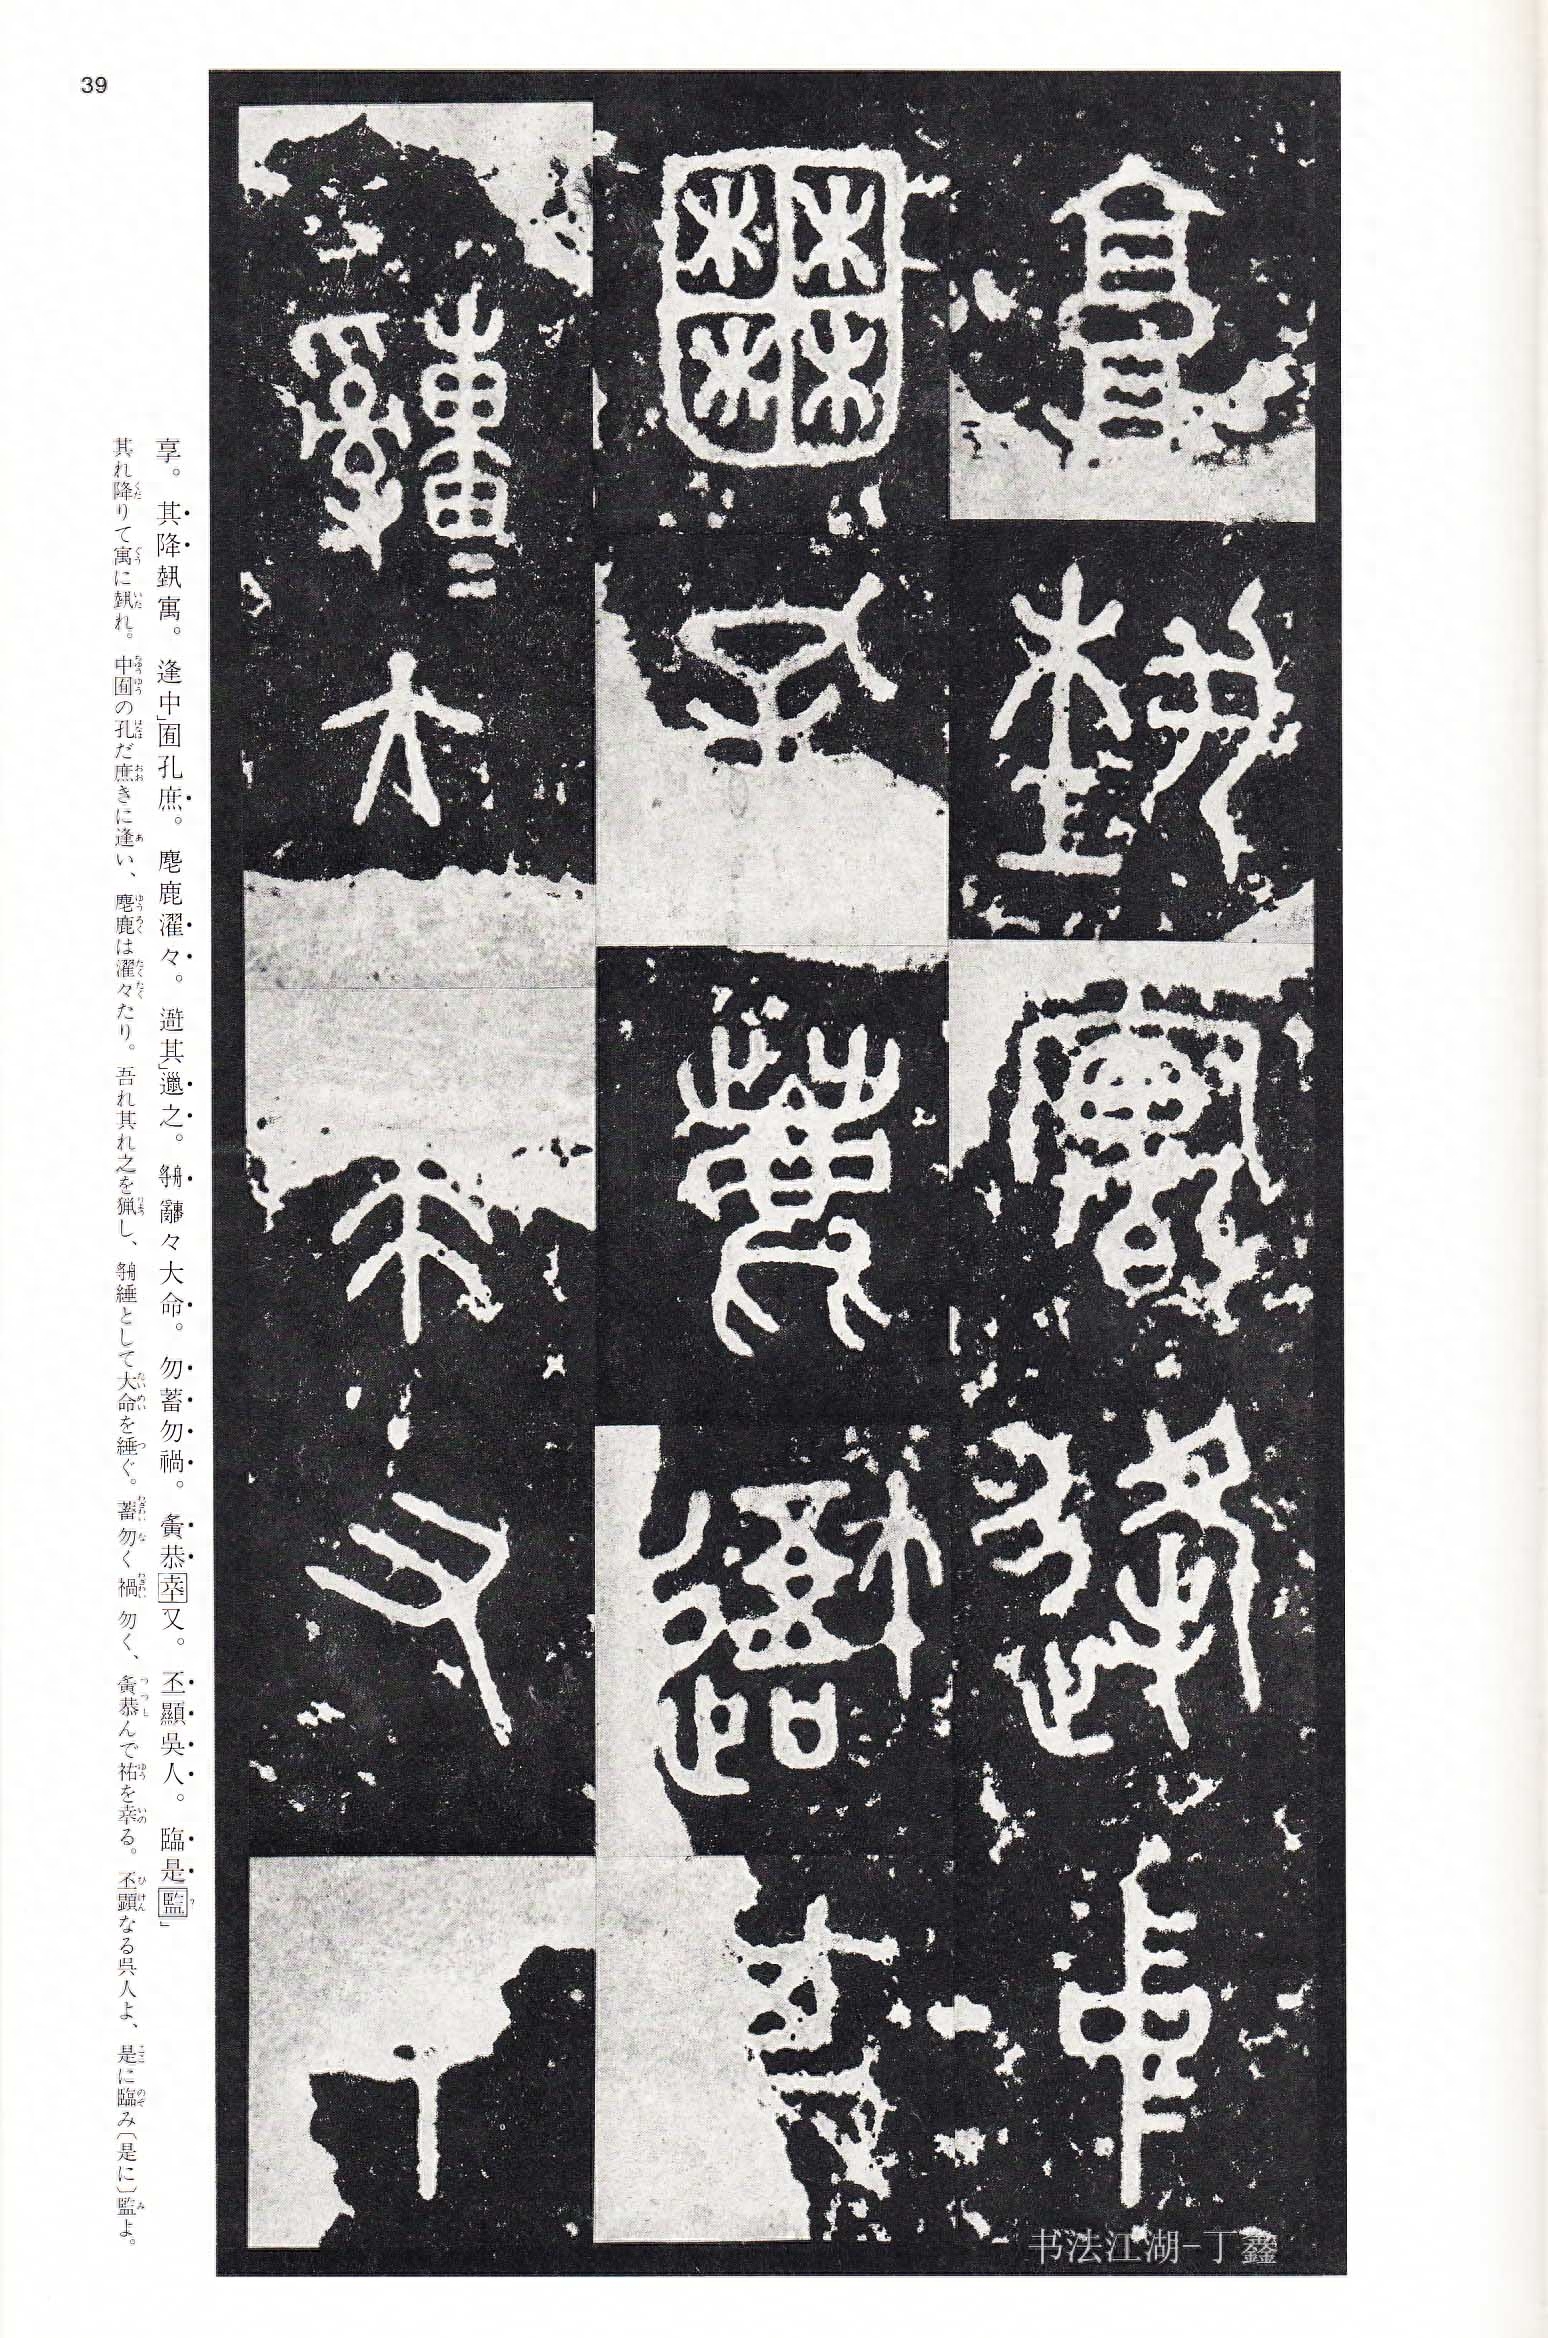 享埶寓逢中
囿孔麀邋其
大又
享。其降埶寓。逢中」囿孔庶。麀鹿濯々。遊其」邋之。々大命。勿蓄勿禍。恭㚔又。丕顯吳人。臨是監」
其れ降りて寓に埶れ。中囿の孔だ庶きに逢い、麀鹿は濯々たり。吾れ其れ之を猟し、として大命を緟ぐ。蓄勿く禍勿く、恭んで祐を㚔る。丕顕なる呉人よ、是に臨み〔是に〕監よ。
39
书法江湖-丁鑫